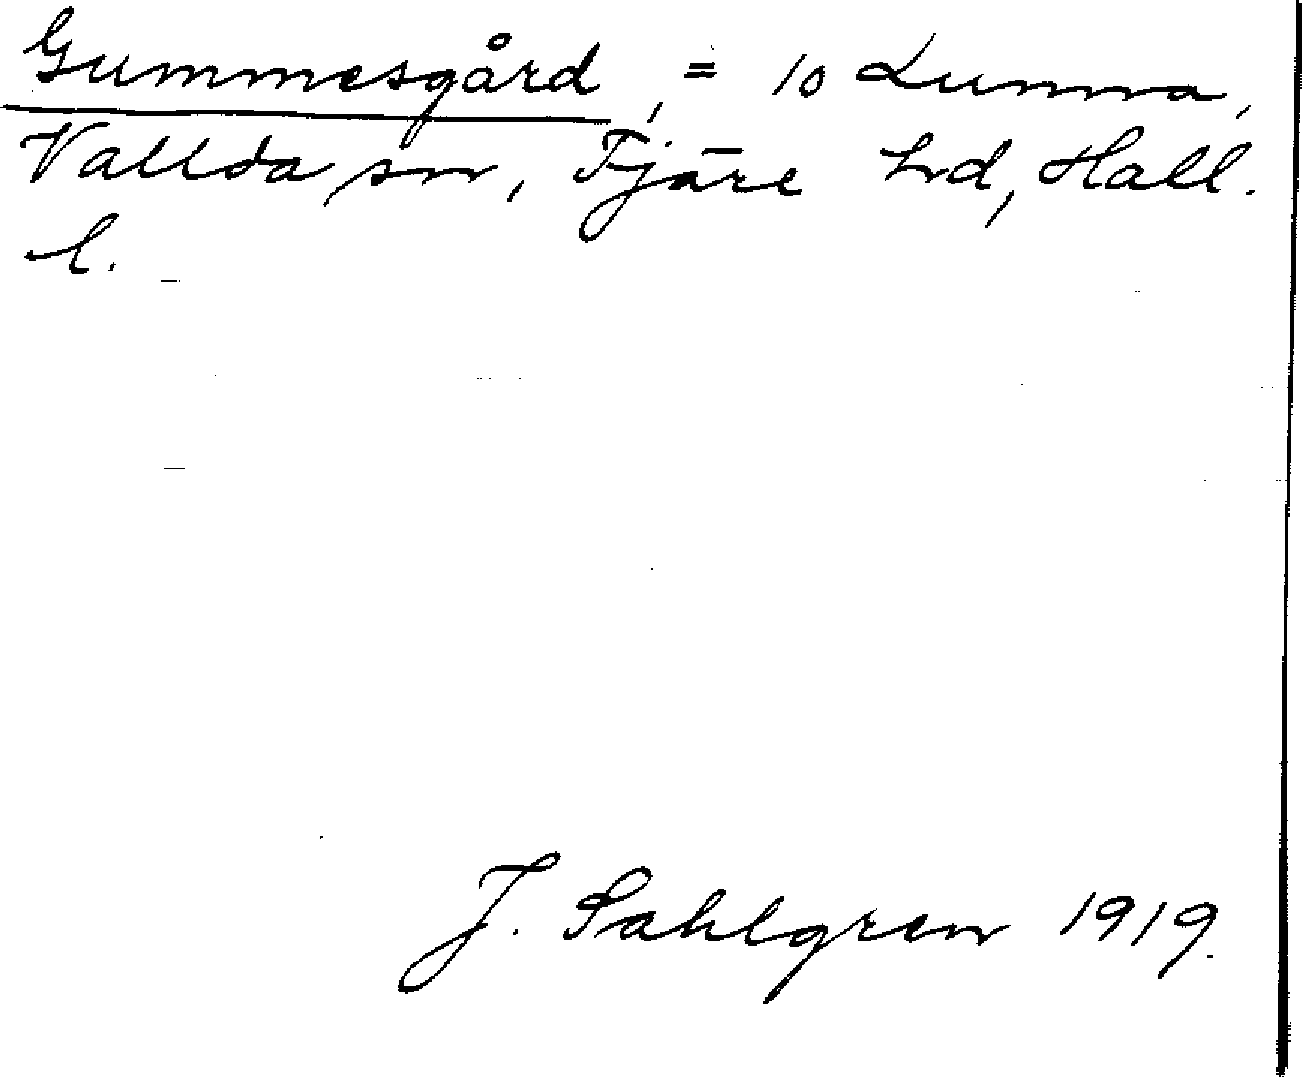 Gummesgård, = 10 Lunna,
Vallda sn, Fjäre hd, Hall.
l.
J. Sahlgren 1919.